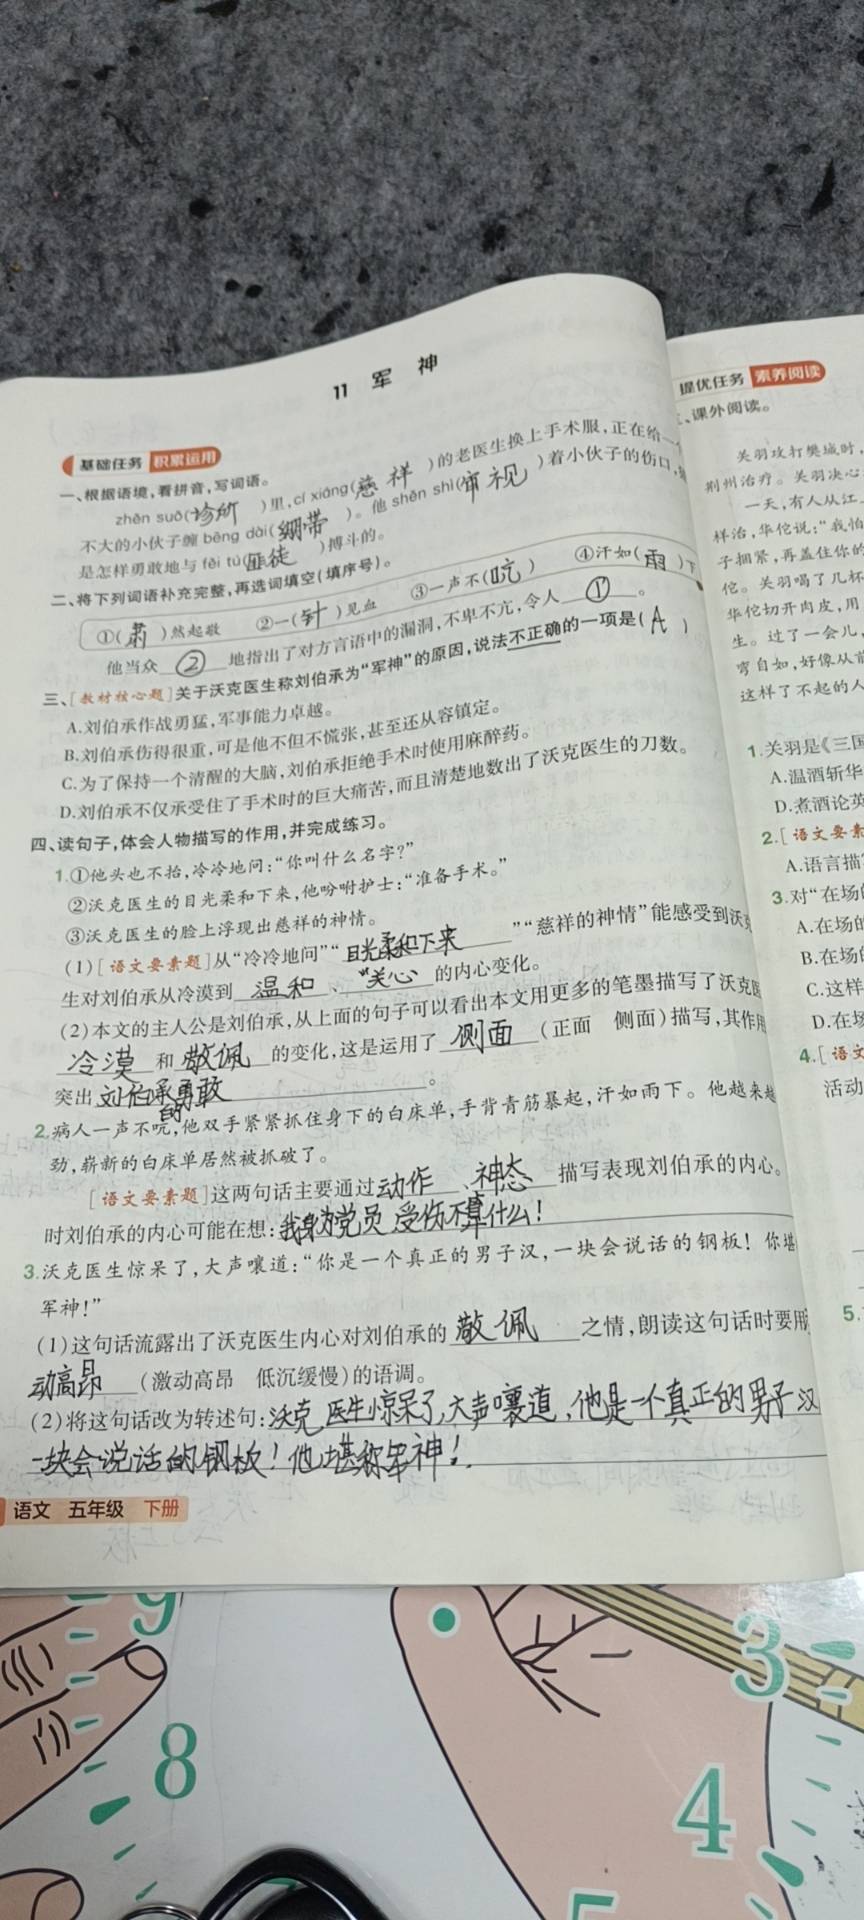 11 军 神
基础任务 积累运用
一、根据语境,看拼音,写词语。
zhěn suǒ(诊所 )里,cí xiáng(慈祥 )的老医生换上手术服,正在给一个
不大的小伙子缠 bēng dài(绷带 )。他 shěn shì(审视 )着小伙子的伤口,
是怎样勇敢地与 fěi tú(匪徒 )搏斗的。
二、将下列词语补充完整,再选词填空(填序号)。
①(肃 )然起敬 ②一(针 )见血 ③一声不(吭 ) ④汗如(雨 )下
他当众 ② 地指出了对方言语中的漏洞,不卑不亢,令人 ① 。
三、[教材核心题]关于沃克医生称刘伯承为“军神”的原因,说法不正确的一项是( A )
A.刘伯承作战勇猛,军事能力卓越。
B.刘伯承伤得很重,可是他不但不慌张,甚至还从容镇定。
C.为了保持一个清醒的大脑,刘伯承拒绝手术时使用麻醉药。
D.刘伯承不仅承受住了手术时的巨大痛苦,而且清楚地数出了沃克医生的刀数。
四、读句子,体会人物描写的作用,并完成练习。
1.①他头也不抬,冷冷地问:“你叫什么名字?”
②沃克医生的目光柔和下来,他吩咐护士:“准备手术。”
③沃克医生的脸上浮现出慈祥的神情。
(1)[语文要素题]从“冷冷地问”“ 目光柔和下来 ”“慈祥的神情”能感受到沃克
生对刘伯承从冷漠到 温和 、 “关心 的内心变化。
(2)本文的主人公是刘伯承,从上面的句子可以看出本文用更多的笔墨描写了沃克医
冷漠 和 敬佩 的变化,这是运用了 侧面 (正面 侧面)描写,其作用
突出 刘伯承勇敢的 。
2.病人一声不吭,他双手紧紧抓住身下的白床单,手背青筋暴起,汗如雨下。他越来越
劲,崭新的白床单居然被抓破了。
[语文要素题]这两句话主要通过 动作 、 神态 描写表现刘伯承的内心。
时刘伯承的内心可能在想: 我身为党员,受伤不算什么!
3.沃克医生惊呆了,大声嚷道:“你是一个真正的男子汉,一块会说话的钢板!你堪
军神!”
(1)这句话流露出了沃克医生内心对刘伯承的 敬佩 之情,朗读这句话时要用
动高昂 (激动高昂 低沉缓慢)的语调。
(2)将这句话改为转述句: 沃克医生惊呆了,大声嚷道,他是一个真正的男子汉
一块会说话的钢板!他堪称军神!.
语文 五年级 下册
提优任务 素养阅读
、课外阅读。
关羽攻打樊城时,
荆州治疗。关羽决心
一天,有人从江
样治,华佗说:“我怕
子捆紧,再盖住你的
佗。关羽喝了几杯
华佗切开肉皮,用
生。过了一会儿,
弯自如,好像从前
这样了不起的人
1.关羽是《三国
A.温酒斩华
D.煮酒论英
2.[语文要素
A.语言描
3.对“在场的
A.在场的
B.在场的
C.这样
D.在场
4.[语文
活动
5.
9
8
3
4
5